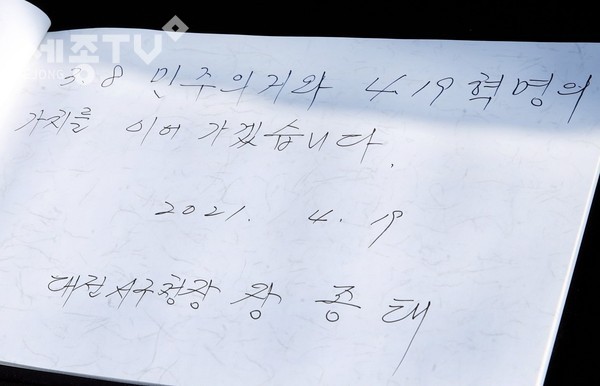 세종TV
3.8 민주의거와 4.19혁명의
가치를 이어 가겠습니다.
2021. 4. 19
대전서구청장 장 종 태